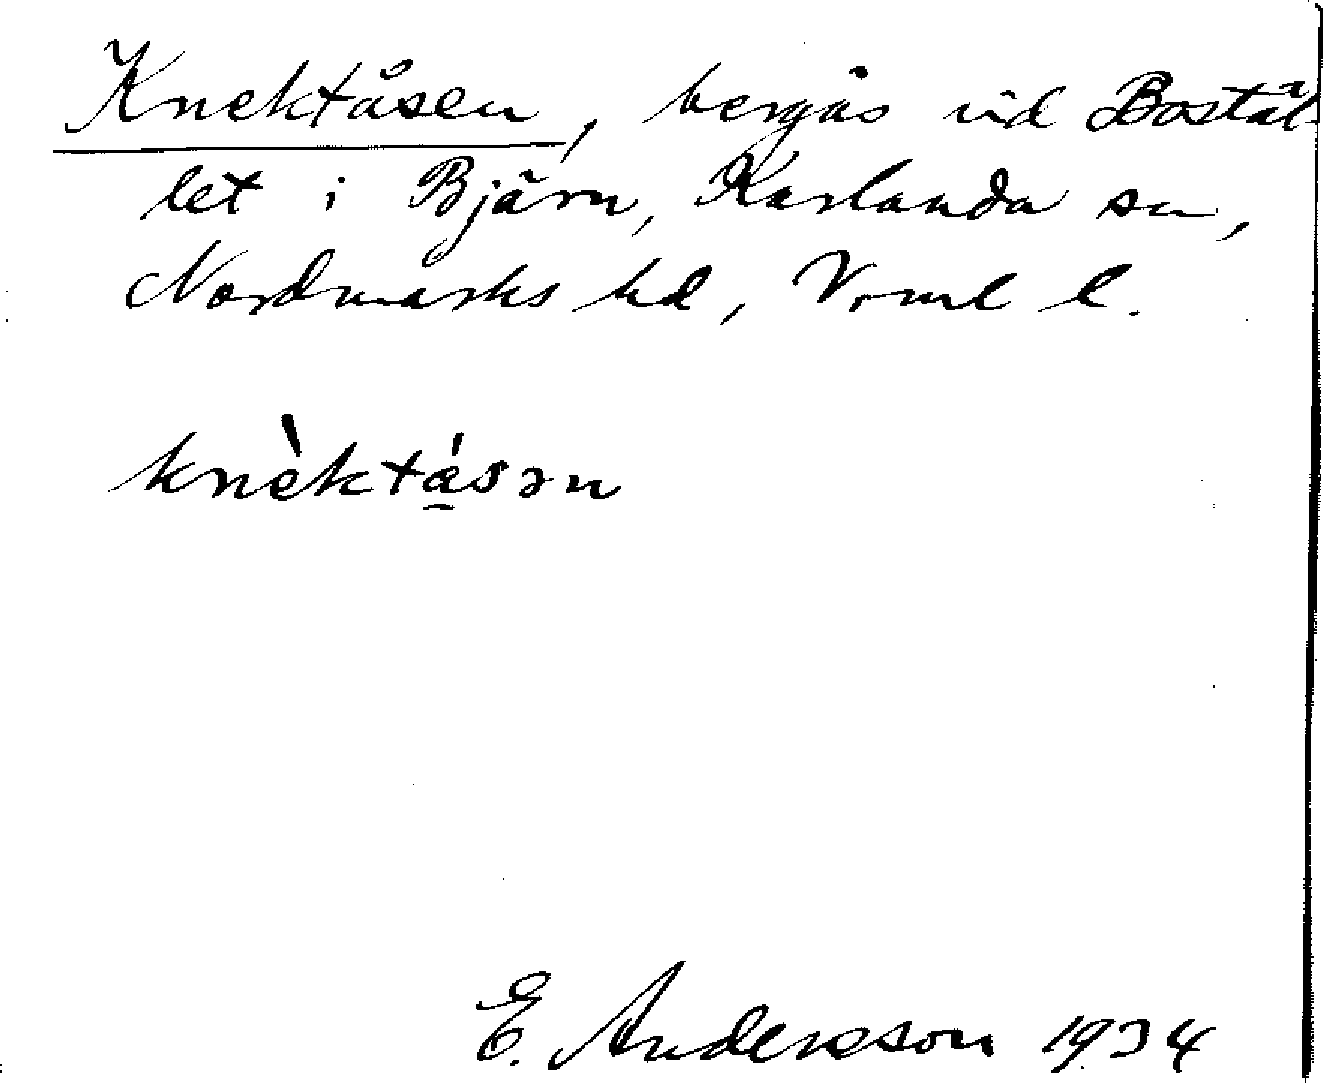 Knektåsen, bergås vid Bostäl-
let i Bjärn, Karlanda sn,
Nordmarks hd, Vrml l.
knèktásən
E. Andersson 1934